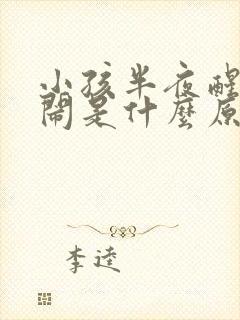 小孩半夜醒
鬧是什麼原
李逵